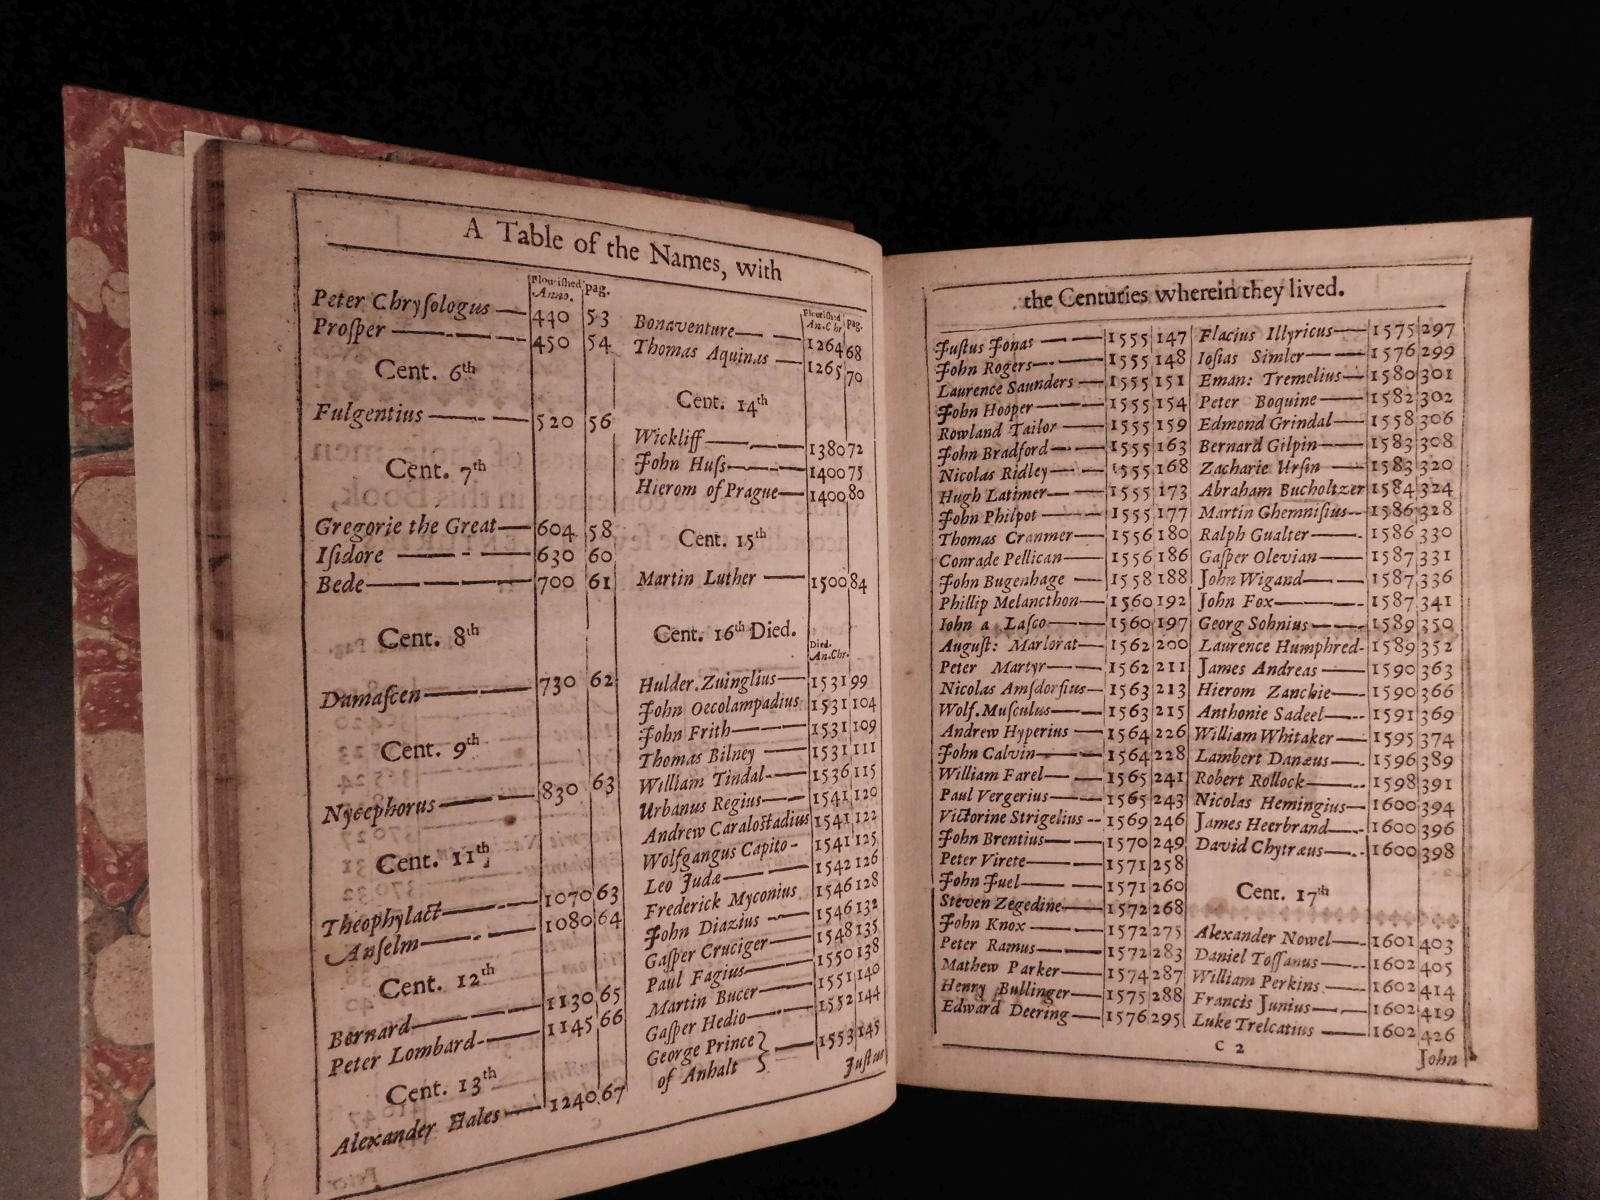 A Table of the Names, with
Flourished Anno. pag.
Peter Chryſologus 440 53
Proſper 450 54
Cent. 6th
Fulgentius 520 56
Cent. 7th
Gregorie the Great 604 58
Iſidore 630 60
Bede 700 61
Cent. 8th
Damaſcen 730 62
Cent. 9th
Nycephorus 830 63
Cent. 11th
Theophylact 1070 63
Anſelm 1080 64
Cent. 12th
Bernard 1130 65
Peter Lombard 1145 66
Cent. 13th
Alexander Hales 1240 67
Flourished An.Chr. pag.
Bonaventure 1264 68
Thomas Aquinas 1265 70
Cent. 14th
Wickliff 1380 72
John Huſs 1400 75
Hierom of Prague 1400 80
Cent. 15th
Martin Luther 1500 84
Cent. 16th Died.
Died. An.Chr.
Hulder. Zuinglius 1531 99
John Oecolampadius 1531 104
John Frith 1531 109
Thomas Bilney 1531 111
William Tindal 1536 115
Urbanus Regius 1541 120
Andrew Caraloſtadius 1541 122
Wolfgangus Capito 1541 125
Leo Judæ 1542 126
Frederick Myconius 1546 128
John Diazius 1546 132
Gaſper Cruciger 1548 135
Paul Fagius 1550 138
Martin Bucer 1551 140
Gaſper Hedio 1552 144
George Prince of Anhalt 1553 145
Juſtus
the Centuries wherein they lived.
Juſtus Jonas 1555 147
John Rogers 1555 148
Laurence Saunders 1555 151
John Hooper 1555 154
Rowland Tailor 1555 159
John Bradford 1555 163
Nicolas Ridley 1555 168
Hugh Latimer 1555 173
John Philpot 1555 177
Thomas Cranmer 1556 180
Conrade Pellican 1556 186
John Bugenhage 1558 188
Phillip Melancthon 1560 192
Iohn a Laſco 1560 197
Auguſt: Marlorat 1562 200
Peter Martyr 1562 211
Nicolas Amſdorfius 1563 213
Wolf. Muſculus 1563 215
Andrew Hyperius 1564 226
John Calvin 1564 228
William Farel 1565 241
Paul Vergerius 1565 243
Victorine Strigelius 1569 246
John Brentius 1570 249
Peter Virete 1571 258
John Juel 1571 260
Steven Zegedine 1572 268
John Knox 1572 275
Peter Ramus 1572 283
Mathew Parker 1574 287
Henry Bullinger 1575 288
Edward Deering 1576 295
Flacius Illyricus 1575 297
Ioſias Simler 1576 299
Eman: Tremelius 1580 301
Peter Boquine 1582 302
Edmond Grindal 1558 306
Bernard Gilpin 1583 308
Zacharie Urſin 1583 320
Abraham Bucholtzer 1584 324
Martin Ghemniſius 1586 328
Ralph Gualter 1586 330
Gaſper Olevian 1587 331
John Wigand 1587 336
John Fox 1587 341
Georg Sohnius 1589 350
Laurence Humphred 1589 352
James Andreas 1590 363
Hierom Zanchie 1590 366
Anthonie Sadeel 1591 369
William Whitaker 1595 374
Lambert Danæus 1596 389
Robert Rollock 1598 391
Nicolas Hemingius 1600 394
James Heerbrand 1600 396
David Chytræus 1600 398
Cent. 17th
Alexander Nowel 1601 403
Daniel Toſſanus 1602 405
William Perkins 1602 414
Francis Junius 1602 419
Luke Trelcatius 1602 426
C 2
John